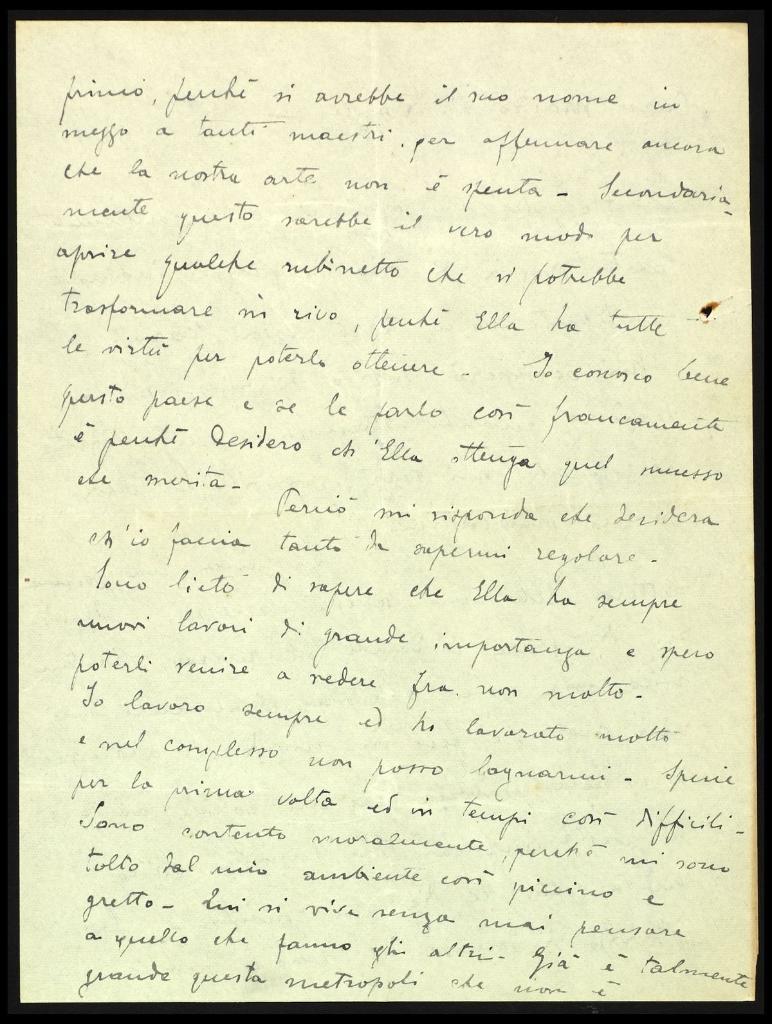 primo, perché si avrebbe il suo nome in
mezzo a tanti maestri, per affermare ancora
che la nostra arte non è spenta – Secondaria-
mente questo sarebbe il vero modo per
aprire qualche rubinetto che si potrebbe
trasformare in rivo, perché Ella ha tutte
le virtù per poterlo ottenere – Io conosco bene
questo paese e se le parlo così francamente
è perché desidero ch'Ella ottenga quel successo
che merita –
Perciò mi risponda che desidera
ch'io faccia tanto da sapermi regolare –
Sono lieto di sapere che Ella ha sempre
nuovi lavori di grande importanza e spero
poterli venire a vedere fra non molto –
Io lavoro sempre ed ho lavorato molto
e nel complesso non posso lagnarmi – Specie
per la prima volta ed in tempi così difficili –
Sono contento moralmente, perché mi sono
tolto dal mio ambiente così piccino e
gretto – Qui si vive senza mai pensare
a quello che fanno gli altri – Già è talmente
grande questa metropoli che non è